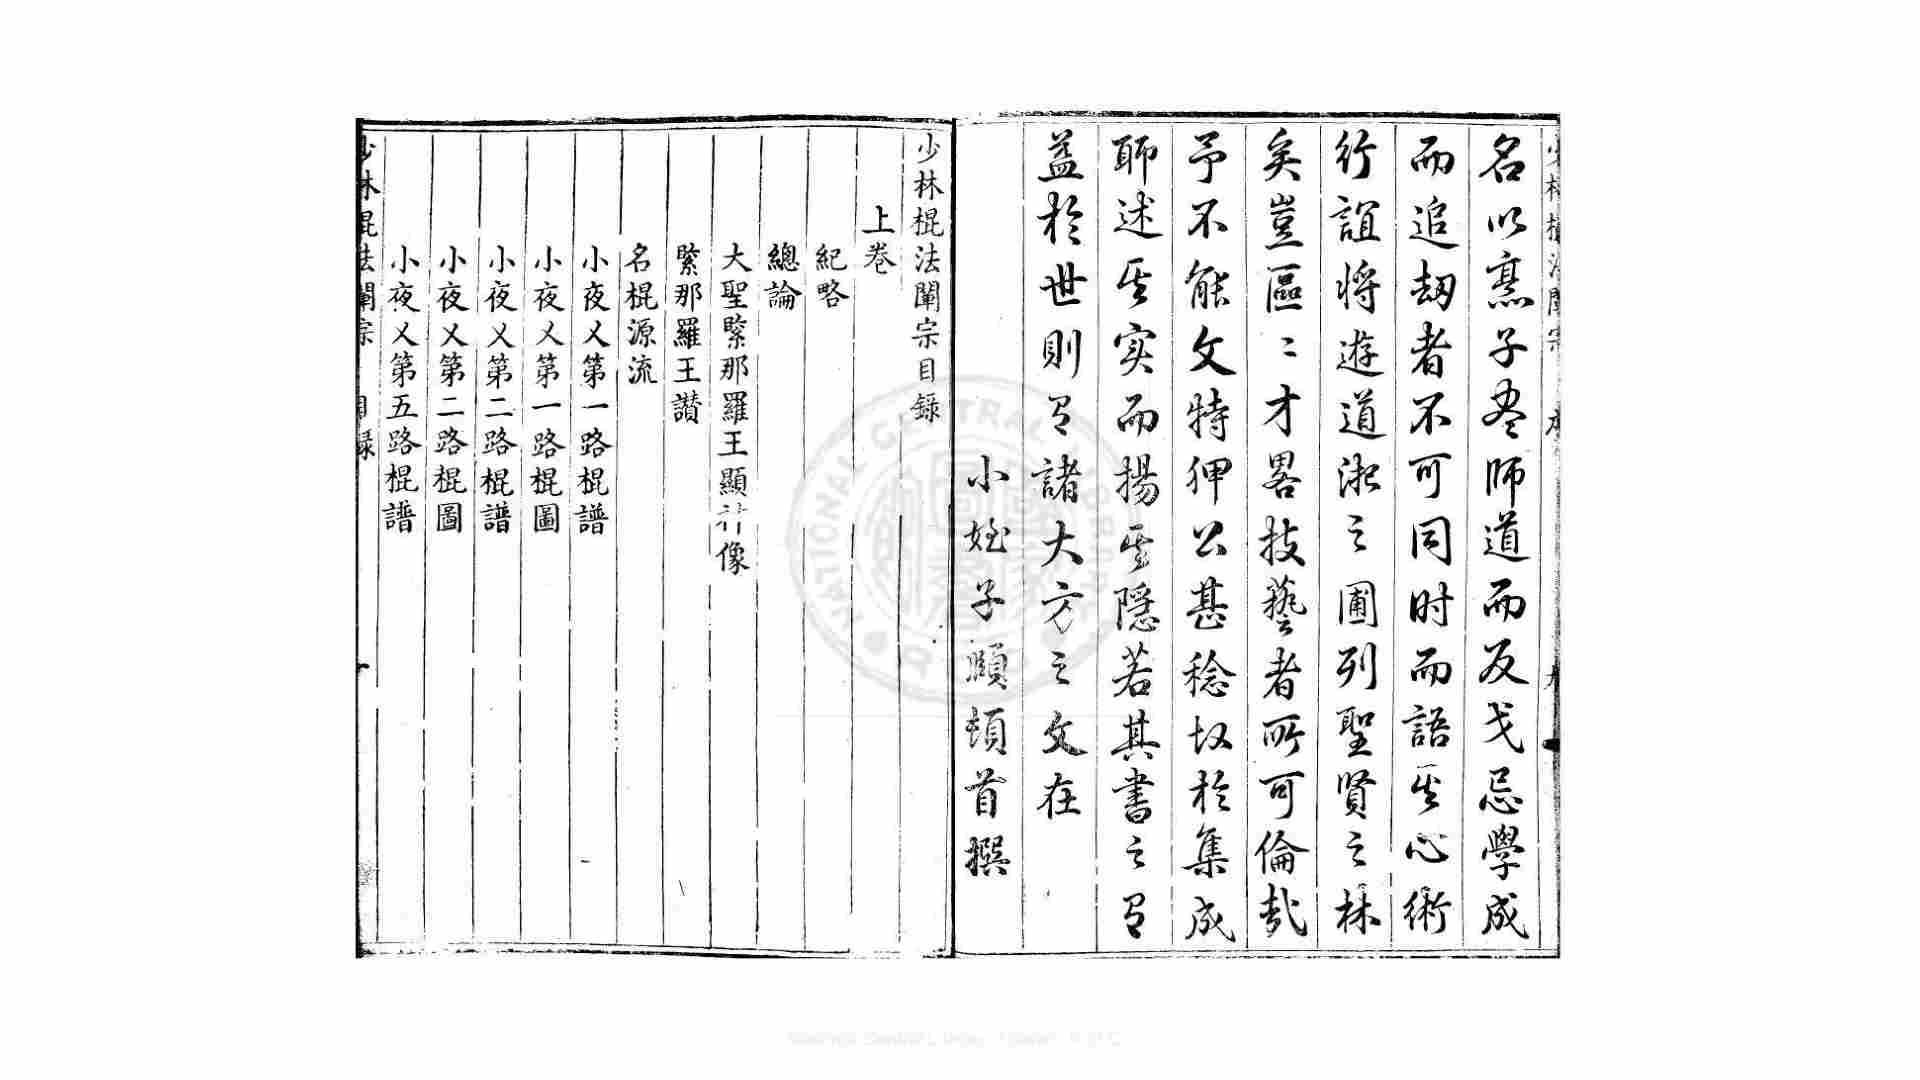 名以藁子盡師道而反戈忌學成
而追劫者不可同时而語其心術
行誼将遊道淑之圃列聖賢之林
矣豈區〻才畧技藝者所可倫哉
予不能文特狎公甚稔故於集成
聊述其实而揚其隱若其書之有
益於世則有諸大方之文在
小姪子頤頓首撰
少林棍法闡宗目錄
上卷
紀略
總論
大聖緊那羅王顯神像
緊那羅王讚
名棍源流
小夜乂第一路棍譜
小夜乂第一路棍圖
小夜乂第二路棍譜
小夜乂第二路棍圖
小夜乂第五路棍譜
少林棍法闡宗 目錄
NATIONAL CENTRAL LIBRARY